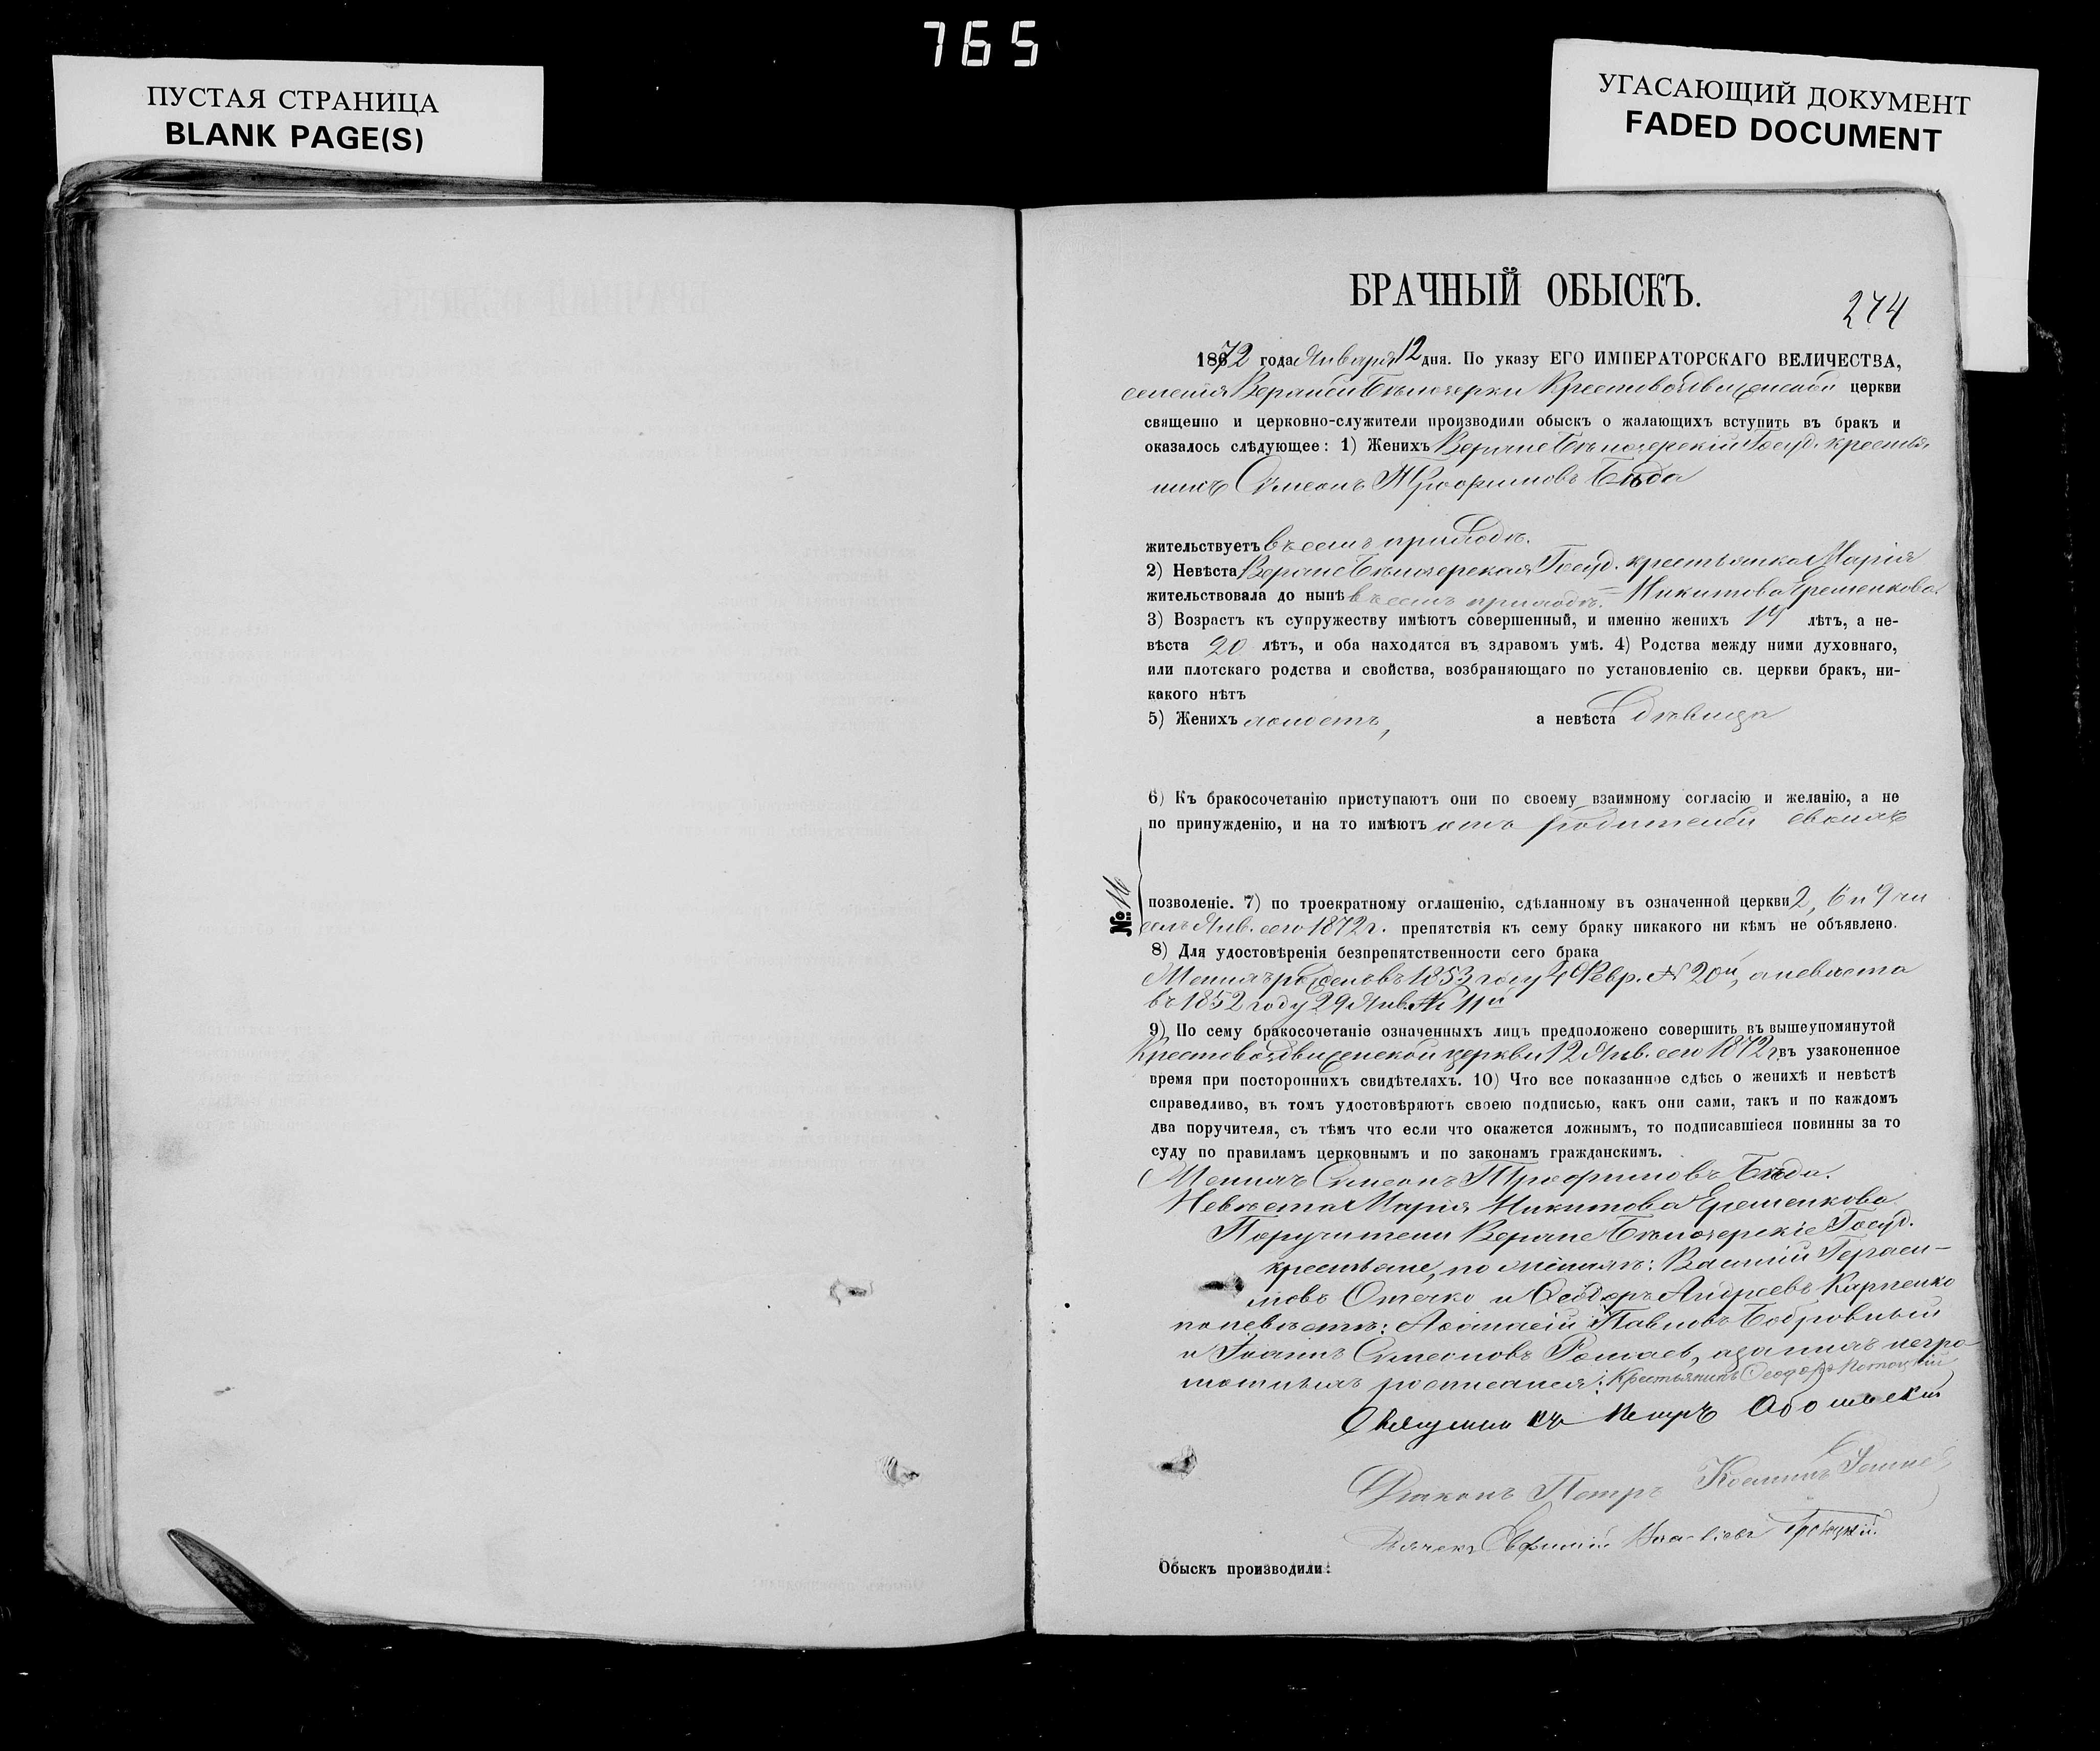 765
ПУСТАЯ СТРАНИЦА
BLANK PAGE(S)
УГАСАЮЩИЙ ДОКУМЕНТ
FADED DOCUMENT
БРАЧНЫЙ ОБЫСКЪ.
274
1872 года Января 12 дня. По указу ЕГО ИМПЕРАТОРСКАГО ВЕЛИЧЕСТВА,
селенія Верхней Бѣлозерки Крестовоздвиженской церкви
священно и церковно-служители производили обыскъ о жалающихъ вступить въ бракъ и
оказалось слѣдующее: 1) Женихъ Верхне Бѣлозерскій Госуд. крестья
нинъ Симеонъ Трофимовъ Бѣда
жительствуетъ въ семъ приходѣ.
2) Невѣста Верхне Бѣлозерская Госуд. крестьянка Марія
жительствовала до нынѣ въ семъ приходѣ. Никитова Ерешенкова
3) Возрастъ къ супружеству имѣютъ совершенный, и именно женихъ 19 лѣтъ, а не-
вѣста 20 лѣтъ, и оба находятся въ здравомъ умѣ. 4) Родства между ними духовнаго,
или плотскаго родства и свойства, возбраняющаго по установленію св. церкви бракъ, ни-
какого нѣтъ
5) Женихъ холостъ, а невѣста дѣвица
6) Къ бракосочетанію приступаютъ они по своему взаимному согласію и желанію, а не
по принужденію, и на то имѣютъ отъ родителей своихъ
№ 16
позволеніе. 7) по троекратному оглашенію, сдѣланному въ означенной церкви 2, 6 и 9 чи
селъ Янв. сего 1872 г. препятствія къ сему браку никакого ни кѣмъ не объявлено.
8) Для удостовѣренія безпрепятственности сего брака
Женихъ рожденъ въ 1853 году 4 Февр. № 20й, а невѣста
въ 1852 году 29 Янв. № 11й
9) По сему бракосочетаніе означенныхъ лицъ предположено совершить въ вышеупомянутой
Крестовоздвиженской церкви 12 Янв. сего 1872 г. въ узаконенное
время при постороннихъ свидѣтеляхъ. 10) Что все показанное сдѣсь о женихѣ и невѣстѣ
справедливо, въ томъ удостовѣряютъ своею подписью, какъ они сами, такъ и по каждомъ
два поручителя, съ тѣмъ что если что окажется ложнымъ, то подписавшіеся повинны за то
суду по правиламъ церковнымъ и по законамъ гражданскимъ.
Женихъ Симеонъ Трофимовъ Бѣда.
Невѣста Марія Никитова Ерешенкова
Поручители Верхне Бѣлозерскіе Госуд.
крестьяне, по женихѣ: Василій Гераси-
мовъ Отечко и Ѳеодоръ Андреевъ Карпенко
по невѣстѣ: Аѳанасій Павловъ Бобровный
и Іоаннъ Симеоновъ, а за нихъ негра-
мотныхъ росписался: Крестьянинъ Ѳеодоръ Потоцкій
Священникъ Петръ
Діаконъ Петръ
Дьячекъ Евфимій Троцкій.
Обыскъ производили: